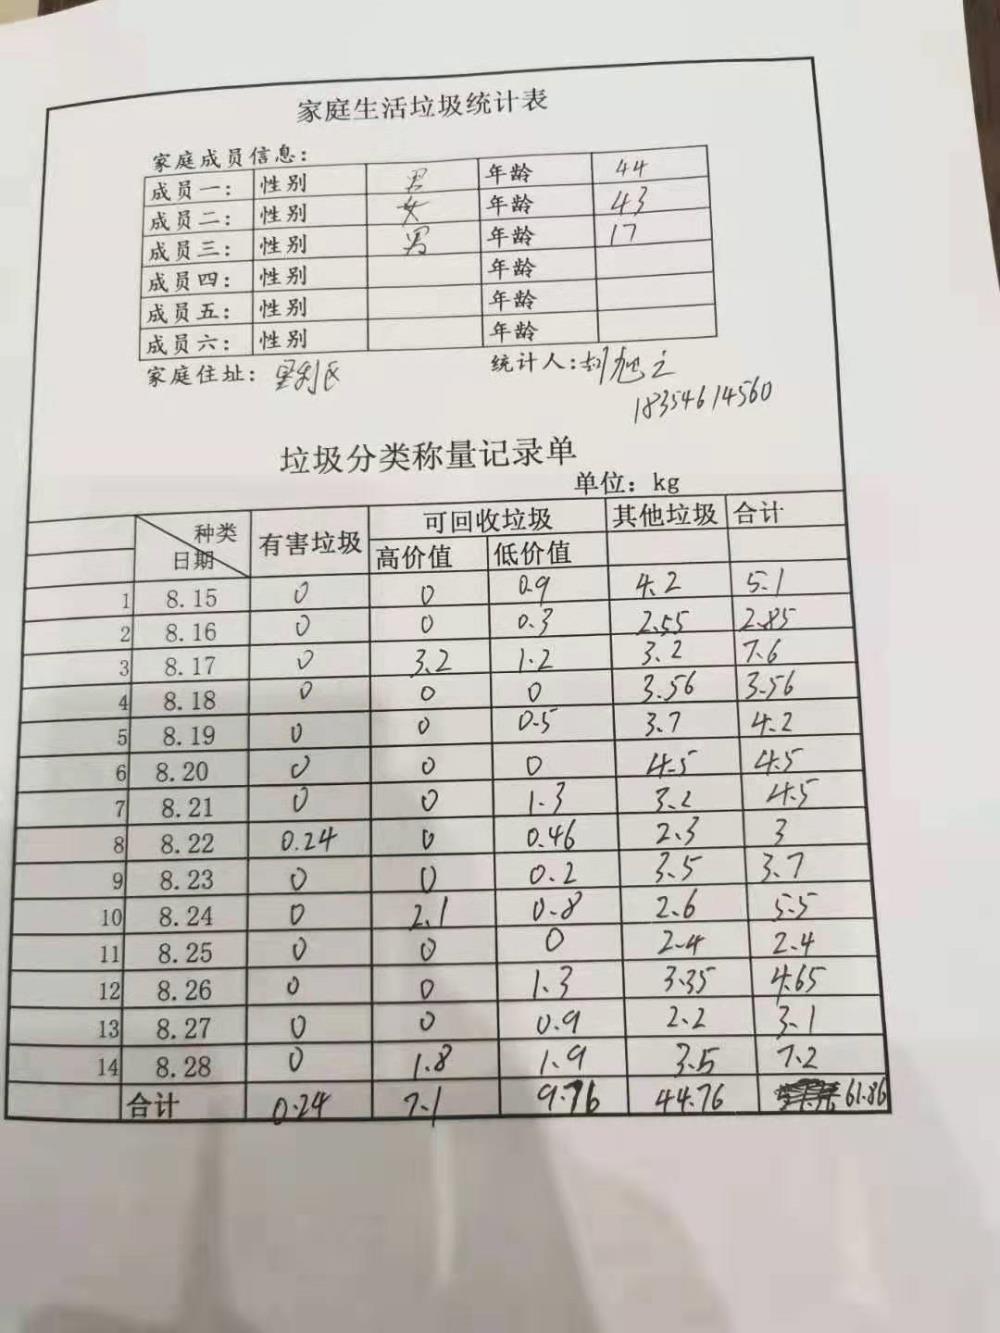 家庭生活垃圾统计表
家庭成员信息：
成员一： 性别 男 年龄 44
成员二： 性别 女 年龄 43
成员三： 性别 男 年龄 17
成员四： 性别 年龄
成员五： 性别 年龄
成员六： 性别 年龄
家庭住址：垦利区 统计人：胡旭之
18354614560
垃圾分类称量记录单
单位：kg
种类 日期 有害垃圾 可回收垃圾 其他垃圾 合计
高价值 低价值
1 8.15 0 0 0.9 4.2 5.1
2 8.16 0 0 0.3 2.55 2.85
3 8.17 0 3.2 1.2 3.2 7.6
4 8.18 0 0 0 3.56 3.56
5 8.19 0 0 0.5 3.7 4.2
6 8.20 0 0 0 4.5 4.5
7 8.21 0 0 1.3 3.2 4.5
8 8.22 0.24 0 0.46 2.3 3
9 8.23 0 0 0.2 3.5 3.7
10 8.24 0 2.1 0.8 2.6 5.5
11 8.25 0 0 0 2.4 2.4
12 8.26 0 0 1.3 3.35 4.65
13 8.27 0 0 0.9 2.2 3.1
14 8.28 0 1.8 1.9 3.5 7.2
合计 0.24 7.1 9.76 44.76 61.86